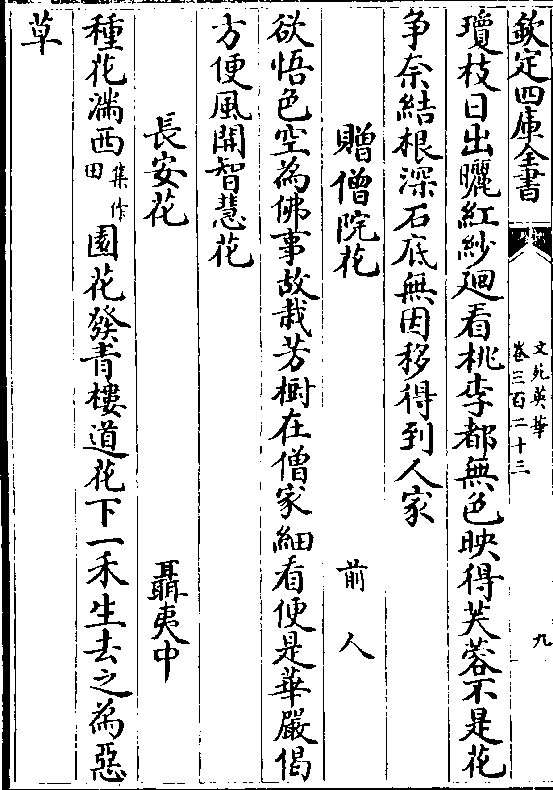 欽定四庫全書
文苑英華
卷三百二十三
九
瓊枝日出曬紅紗廻看桃李都無色映得芙蓉不是花
争奈結根深石底無因移得到人家
贈僧院花
前人
欲悟色空為佛事故栽芳樹在僧家細看便是華嚴偈
方便風開智慧花
長安花
聶夷中
種花滿西集作田園花發青樓道花下一禾生去之為惡
草